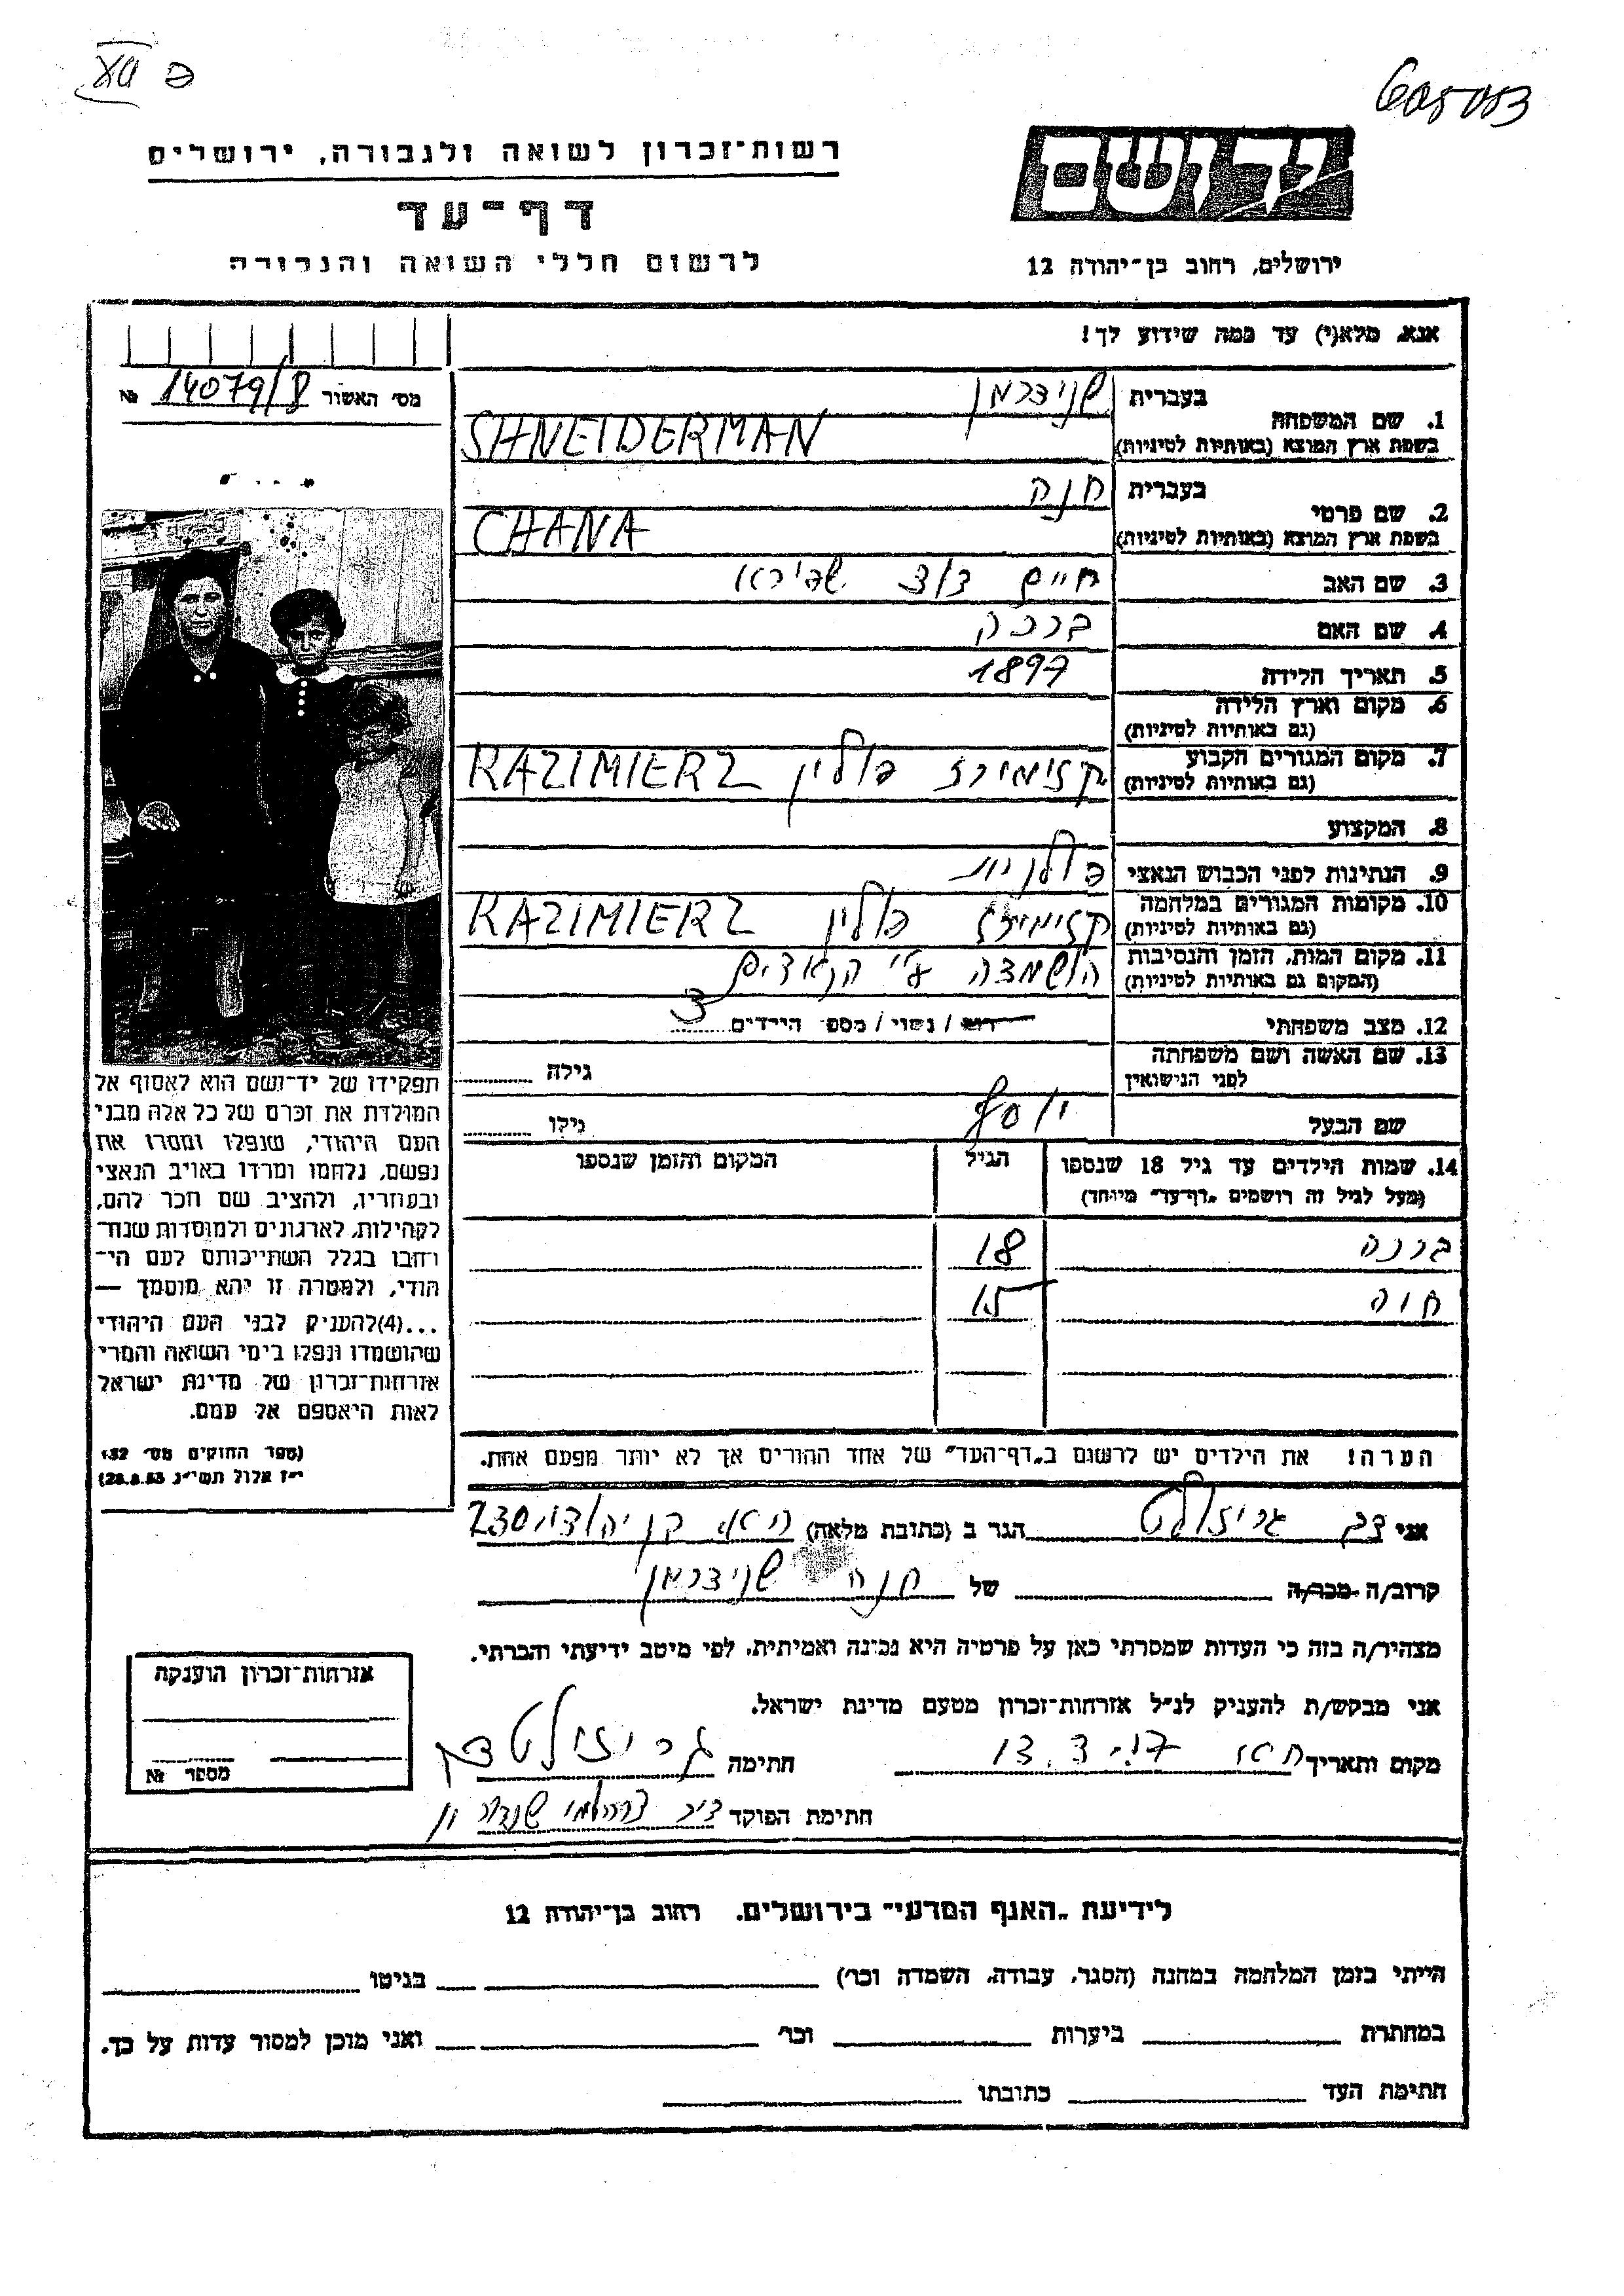 605003
רשות־זכרון לשואה ולגבורה, ירושלים
דף־עד
לרשום חללי השואה והגבורה
יד ושם
ירושלים, רחוב בן־יהודה 12
אנא, מלא(י) עד כמה שידוע לך!
מס׳ האשור 14079/8 №
1. שם המשפחה בעברית שניידרמן
בשפת ארץ המוצא (באותיות לטיניות) SHNEIDERMAN
2. שם פרטי בעברית חנה
בשפת ארץ המוצא (באותיות לטיניות) CHANA
3. שם האב חיים דוד שפירא
4. שם האם ברכה
5. תאריך הלידה 1897
6. מקום וארץ הלידה
(גם באותיות לטיניות)
7. מקום המגורים הקבוע קזימירז פולין KAZIMIERZ
(גם באותיות לטיניות)
8. המקצוע
9. הנתינות לפני הכבוש הנאצי פולנית
10. מקומות המגורים במלחמה קזימירז פולין KAZIMIERZ
(גם באותיות לטיניות)
11. מקום המות, הזמן והנסיבות הושמדה ע״י הנאצים
(המקום גם באותיות לטיניות)
12. מצב משפחתי רוק / נשוי / מספר הילדים 3
13. שם האשה ושם משפחתה
לפני הנישואין גילה
שם הבעל יוסף גילו
14. שמות הילדים עד גיל 18 שנספו הגיל המקום והזמן שנספו
(מעל לגיל זה רושמים „דף־עד״ מיוחד)
ברכה 18
חוה 15
הערה! את הילדים יש לרשום ב„דף־העד״ של אחד ההורים אך לא יותר מפעם אחת.
תפקידו של יד־ושם הוא לאסוף אל
המולדת את זכרם של כל אלה מבני
העם היהודי, שנפלו ומסרו את
נפשם, נלחמו ומרדו באויב הנאצי
ובעוזריו, ולהציב שם וזכר להם,
לקהילות, לארגונים ולמוסדות שנח־
רבו בגלל השתייכותם לעם הי־
הודי, ולמטרה זו יהא מוסמך —
...(4)להעניק לבני העם היהודי
שהושמדו ונפלו בימי השואה והמרי
אזרחות־זכרון של מדינת ישראל
לאות היאספם אל עמם.
(ספר החוקים מס׳ 132
י״ז אלול תשי״ג 28.8.53)
אני דב גריזולט הגר ב (כתובת מלאה) בן יהודה 230
קרוב/ה מכר/ה של חנה שניידרמן
מצהיר/ה בזה כי העדות שמסרתי כאן על פרטיה היא נכונה ואמיתית, לפי מיטב ידיעתי והכרתי.
אני מבקש/ת להעניק לנ״ל אזרחות־זכרון מטעם מדינת ישראל.
מקום ותאריך 13.3 חתימה גריזולט דב
חתימת הפוקד
אזרחות־זכרון הוענקה
מספר №
לידיעת „האגף המדעי״ בירושלים, רחוב בן־יהודה 12
הייתי בזמן המלחמה במחנה (הסגר, עבודה, השמדה וכר׳) בגיטו
במחתרת ביערות וכר׳ ואני מוכן למסור עדות על כך.
חתימת העד כתובתו